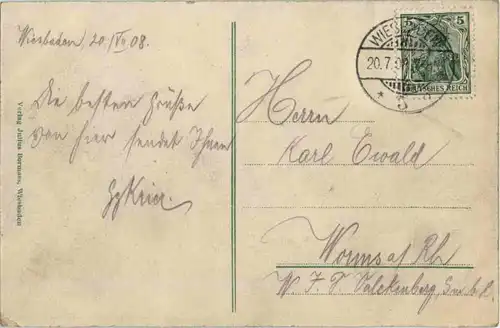 Wiesbaden, 20/VII 08.
Die besten Grüße
von hier sendet Ihnen
Herrn
Karl Ewald
Worms a/ Rh
W. J. P. Valckenberg, G.m.b.H.
Verlag Julius Bormass, Wiesbaden
WIESBADEN
20.7.08
* 5
5 5
DEUTSCHES REICH